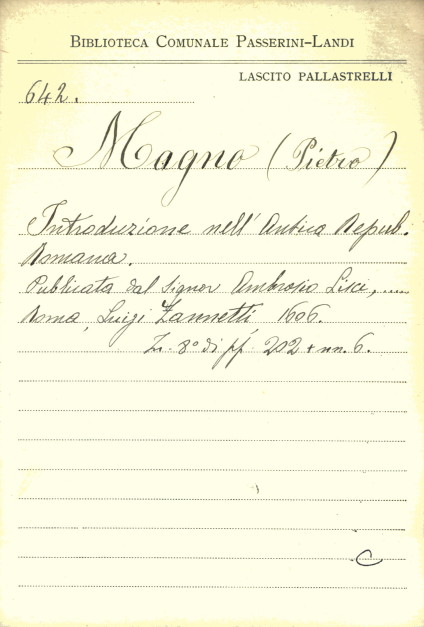 BIBLIOTECA COMUNALE PASSERINI-LANDI
LASCITO PALLASTRELLI
642.
Magno (Pietro)
Introduzione nell' Antica Repub.
Romana.
Pubblicata dal Signor Ambrosio Lisci, .....
Roma, Luigi Zannetti, 1606.
8° di pf. 202 + nn. 6.
C